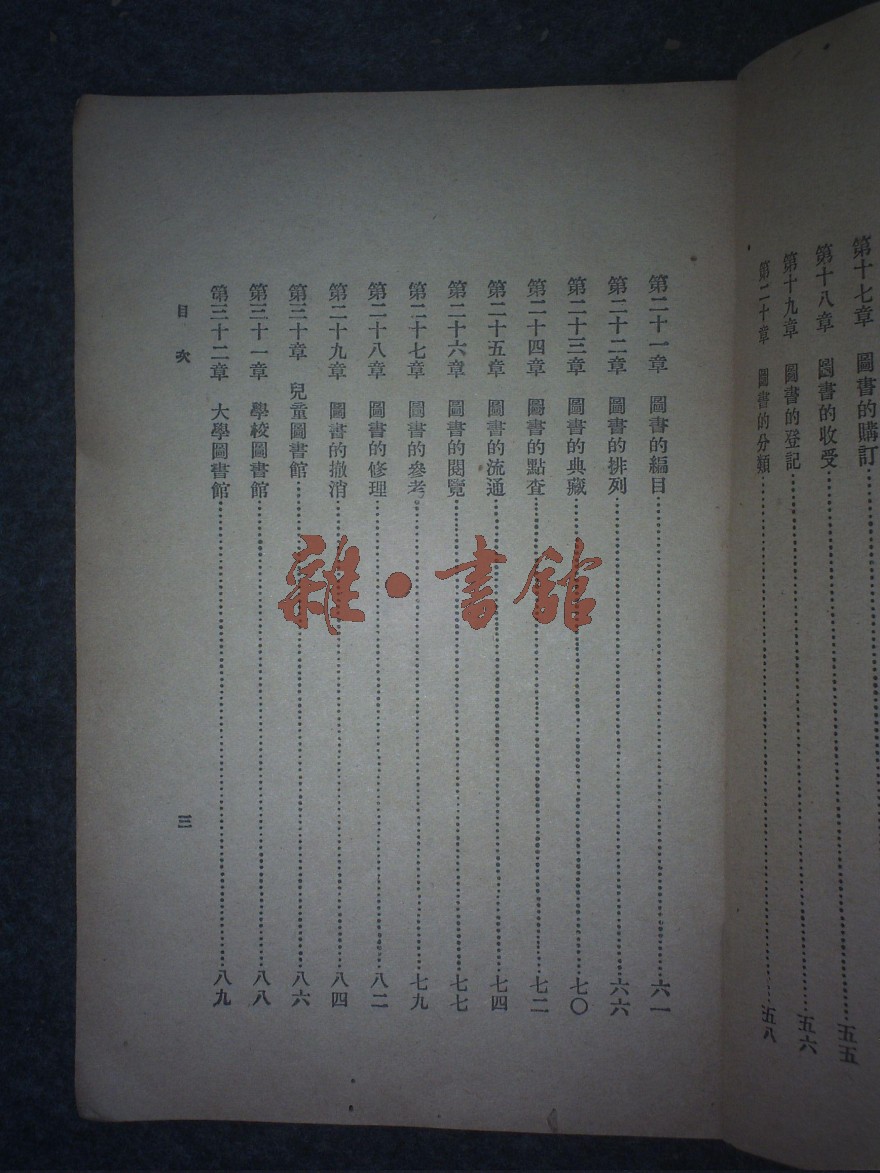 第十七章　圖書的購訂
第十八章　圖書的收受……五五
第十九章　圖書的登記……五六
第二十章　圖書的分類……五八
第二十一章　圖書的編目……六一
第二十二章　圖書的排列……六六
第二十三章　圖書的典藏……七〇
第二十四章　圖書的點查……七二
第二十五章　圖書的流通……七四
第二十六章　圖書的閱覽……七七
第二十七章　圖書的參考……七九
第二十八章　圖書的修理……八二
第二十九章　圖書的撤消……八四
第三十章　兒童圖書館……八六
第三十一章　學校圖書館……八八
第三十二章　大學圖書館……八九
目次
三
雜·書館